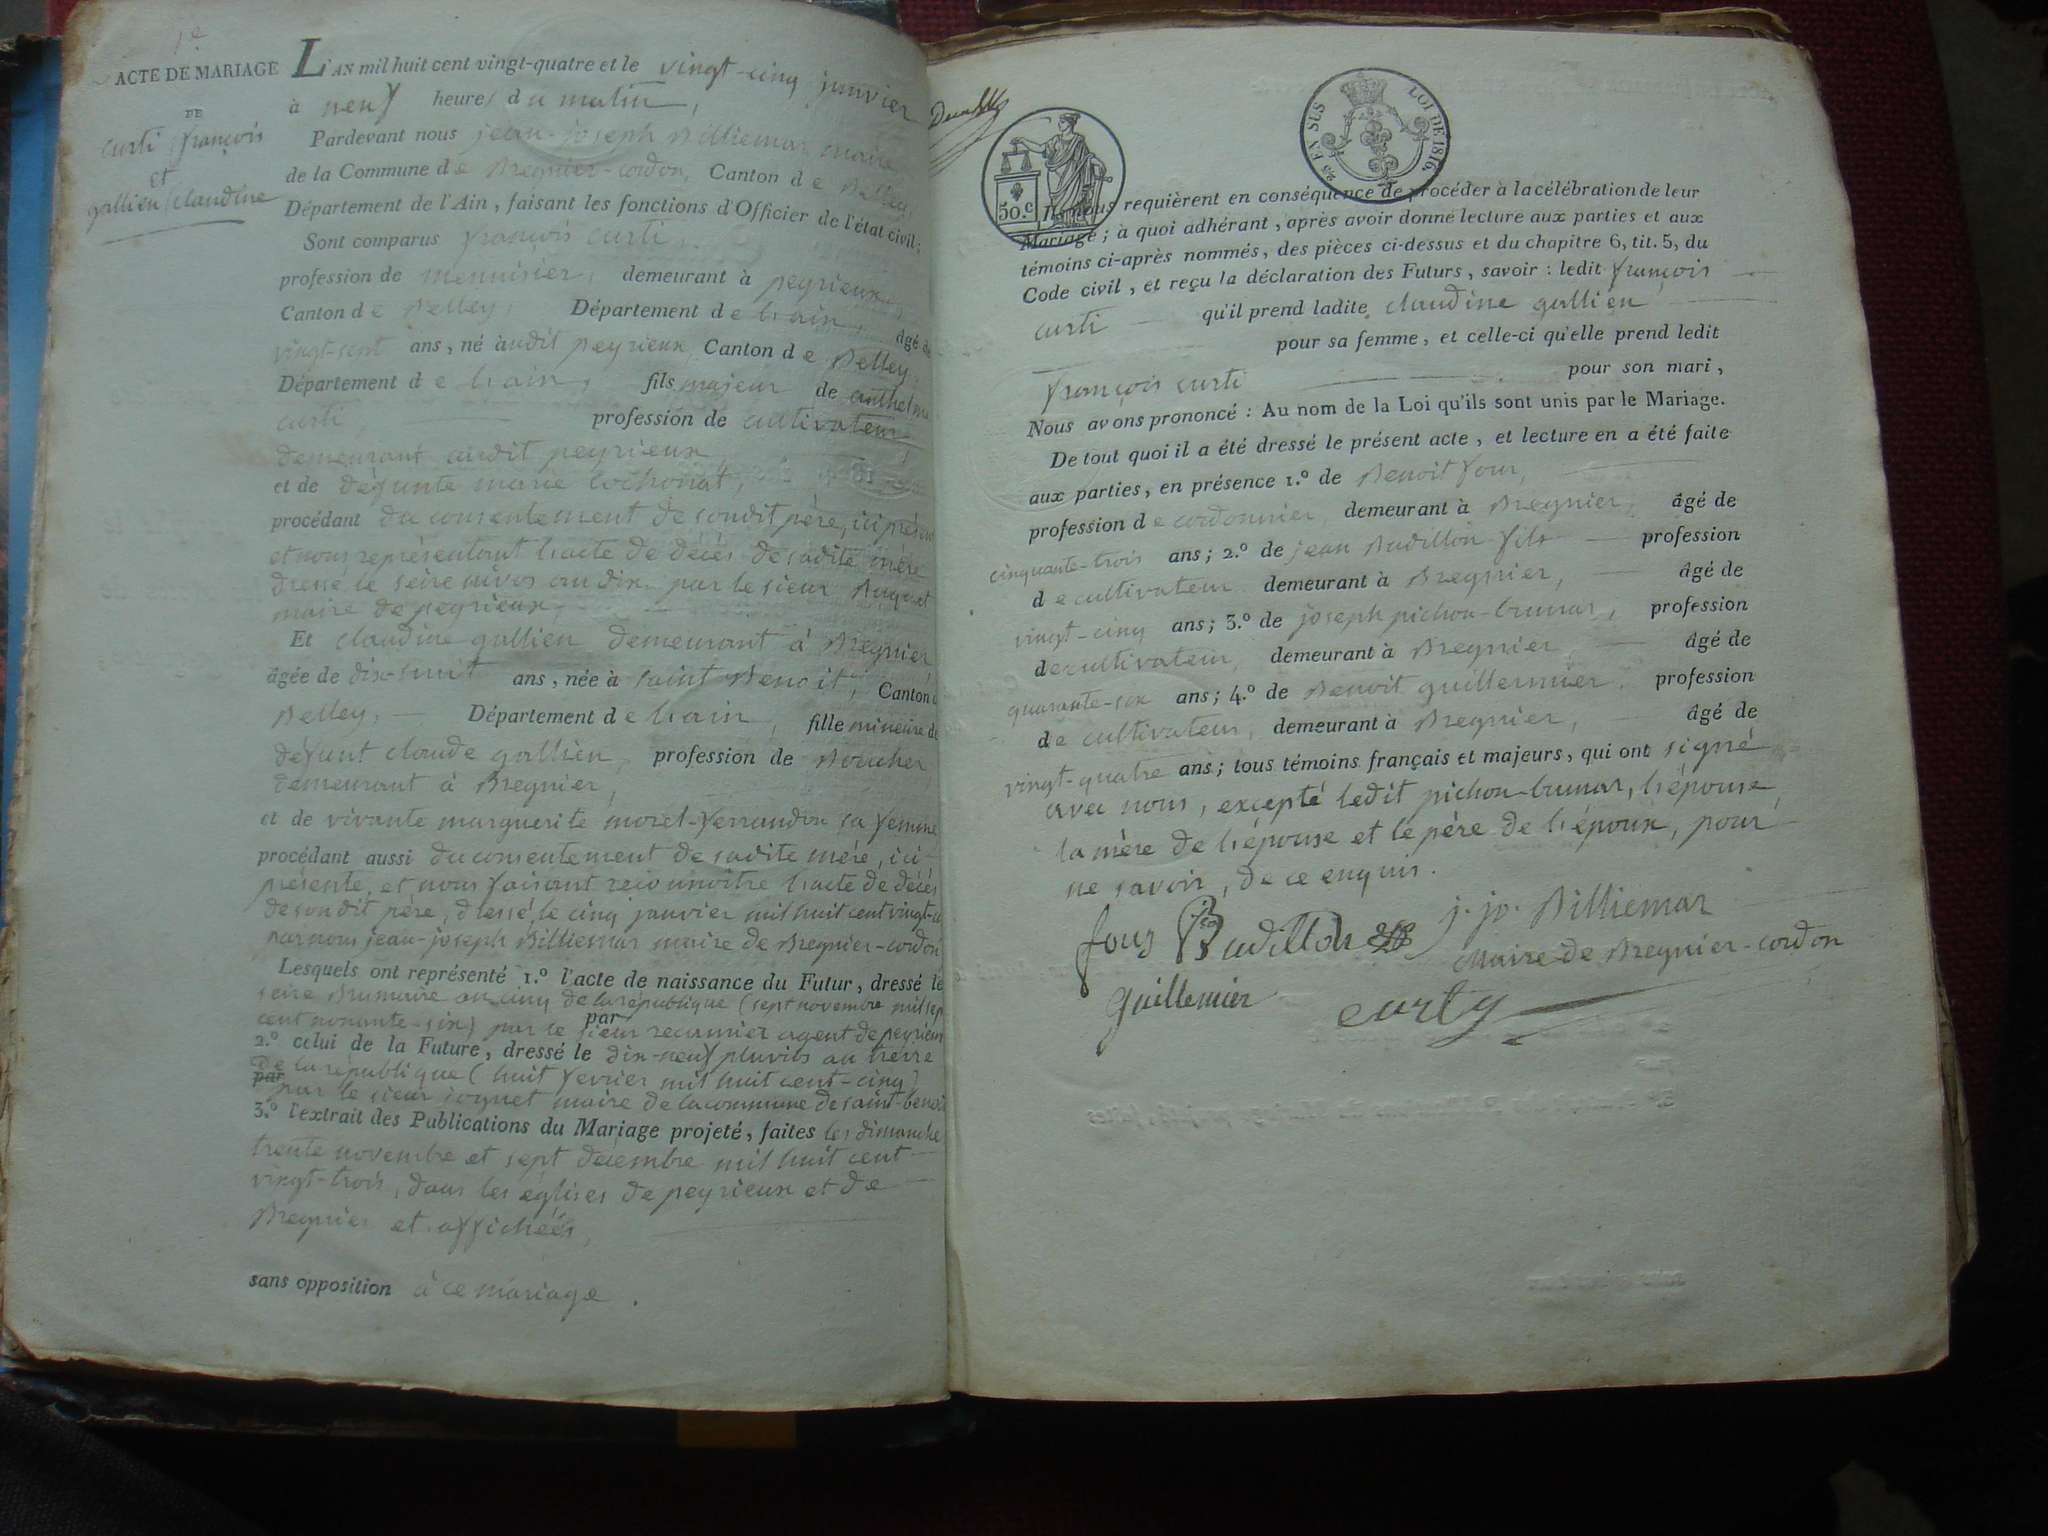 1e
ACTE DE MARIAGE
DE
curti françois
et
gallien claudine
L'AN mil huit cent vingt-quatre et le vingt-cinq janvier
à neuf heures du matin,
Pardevant nous jean-joseph Billiemar maire
de la Commune de Bregnier-cordon, Canton de Belley,
Département de l'Ain, faisant les fonctions d'Officier de l'état civil;
Sont comparus françois curti,
profession de menuisier, demeurant à peyrieux,
Canton de Belley, Département de l'ain, âgé de
vingt-sept ans, né audit peyrieux, Canton de Belley,
Département de l'ain, fils majeur de anthelme
curti, profession de cultivateur,
demeurant audit peyrieux,
et de défunte marie cochonat,
procédant du consentement de sondit père, ici présent
et nous représentant l'acte de décès de sadite mère
dressé le seize nivos an dix par le sieur
maire de peyrieux,
Et claudine gallien demeurant à Bregnier,
âgée de dix-huit ans, née à saint Benoit, Canton
Belley, Département de l'ain, fille mineure de
défunt claude gallien, profession de Boucher,
demeurant à Bregnier,
et de vivante marguerite morel-ferrandon sa femme
procédant aussi du consentement de sadite mère, ici
présente, et nous faisant reconnoître l'acte de décès
de son dit père, dressé, le cinq janvier mil huit cent vingt-
par nous jean-joseph Billiemar maire de Bregnier-cordon
Lesquels ont représenté 1.º l'acte de naissance du Futur, dressé le
seize Brumaire an cinq de la république (sept novembre mil sept
cent nonante-six) par le sieur recamier agent de peyrieux
par
2.º celui de la Future, dressé le dix-neuf pluvios an treize
de la république (huit fevrier mil huit cent-cinq)
par par le sieur maire de la commune de saint-benoit
3.º l'extrait des Publications du Mariage projeté, faites les dimanche
trente novembre et sept décembre mil huit cent
vingt-trois, dans les églises de peyrieux et de
Bregnier et affichées,
sans opposition à ce mariage.
50.c
25 EN SUS LOI DE 1816.
Ils nous requièrent en conséquence de procéder à la célébration de leur
Mariage; à quoi adhérant, après avoir donné lecture aux parties et aux
témoins ci-après nommés, des pièces ci-dessus et du chapitre 6, tit. 5, du
Code civil, et reçu la déclaration des Futurs, savoir: ledit françois
curti qu'il prend ladite claudine gallien
pour sa femme, et celle-ci qu'elle prend ledit
françois curti pour son mari,
Nous avons prononcé: Au nom de la Loi qu'ils sont unis par le Mariage.
De tout quoi il a été dressé le présent acte, et lecture en a été faite
aux parties, en présence 1.º de Benoit four,
profession de cordonnier, demeurant à Bregnier, âgé de
cinquante-trois ans; 2.º de jean Budillon fils profession
de cultivateur demeurant à Bregnier, âgé de
vingt-cinq ans; 3.º de joseph pichon-brumar, profession
de cultivateur, demeurant à Bregnier, âgé de
quarante-six ans; 4.º de Benoit guillermier, profession
de cultivateur, demeurant à Bregnier, âgé de
vingt-quatre ans; tous témoins français et majeurs, qui ont signé
avec nous, excepté ledit pichon-brumar, l'épouse,
la mère de l'épouse et le père de l'époux, pour
ne savoir, de ce enquis.
four Budillon j. jo. Billiemar
maire de Bregnier-cordon
guillermier curty